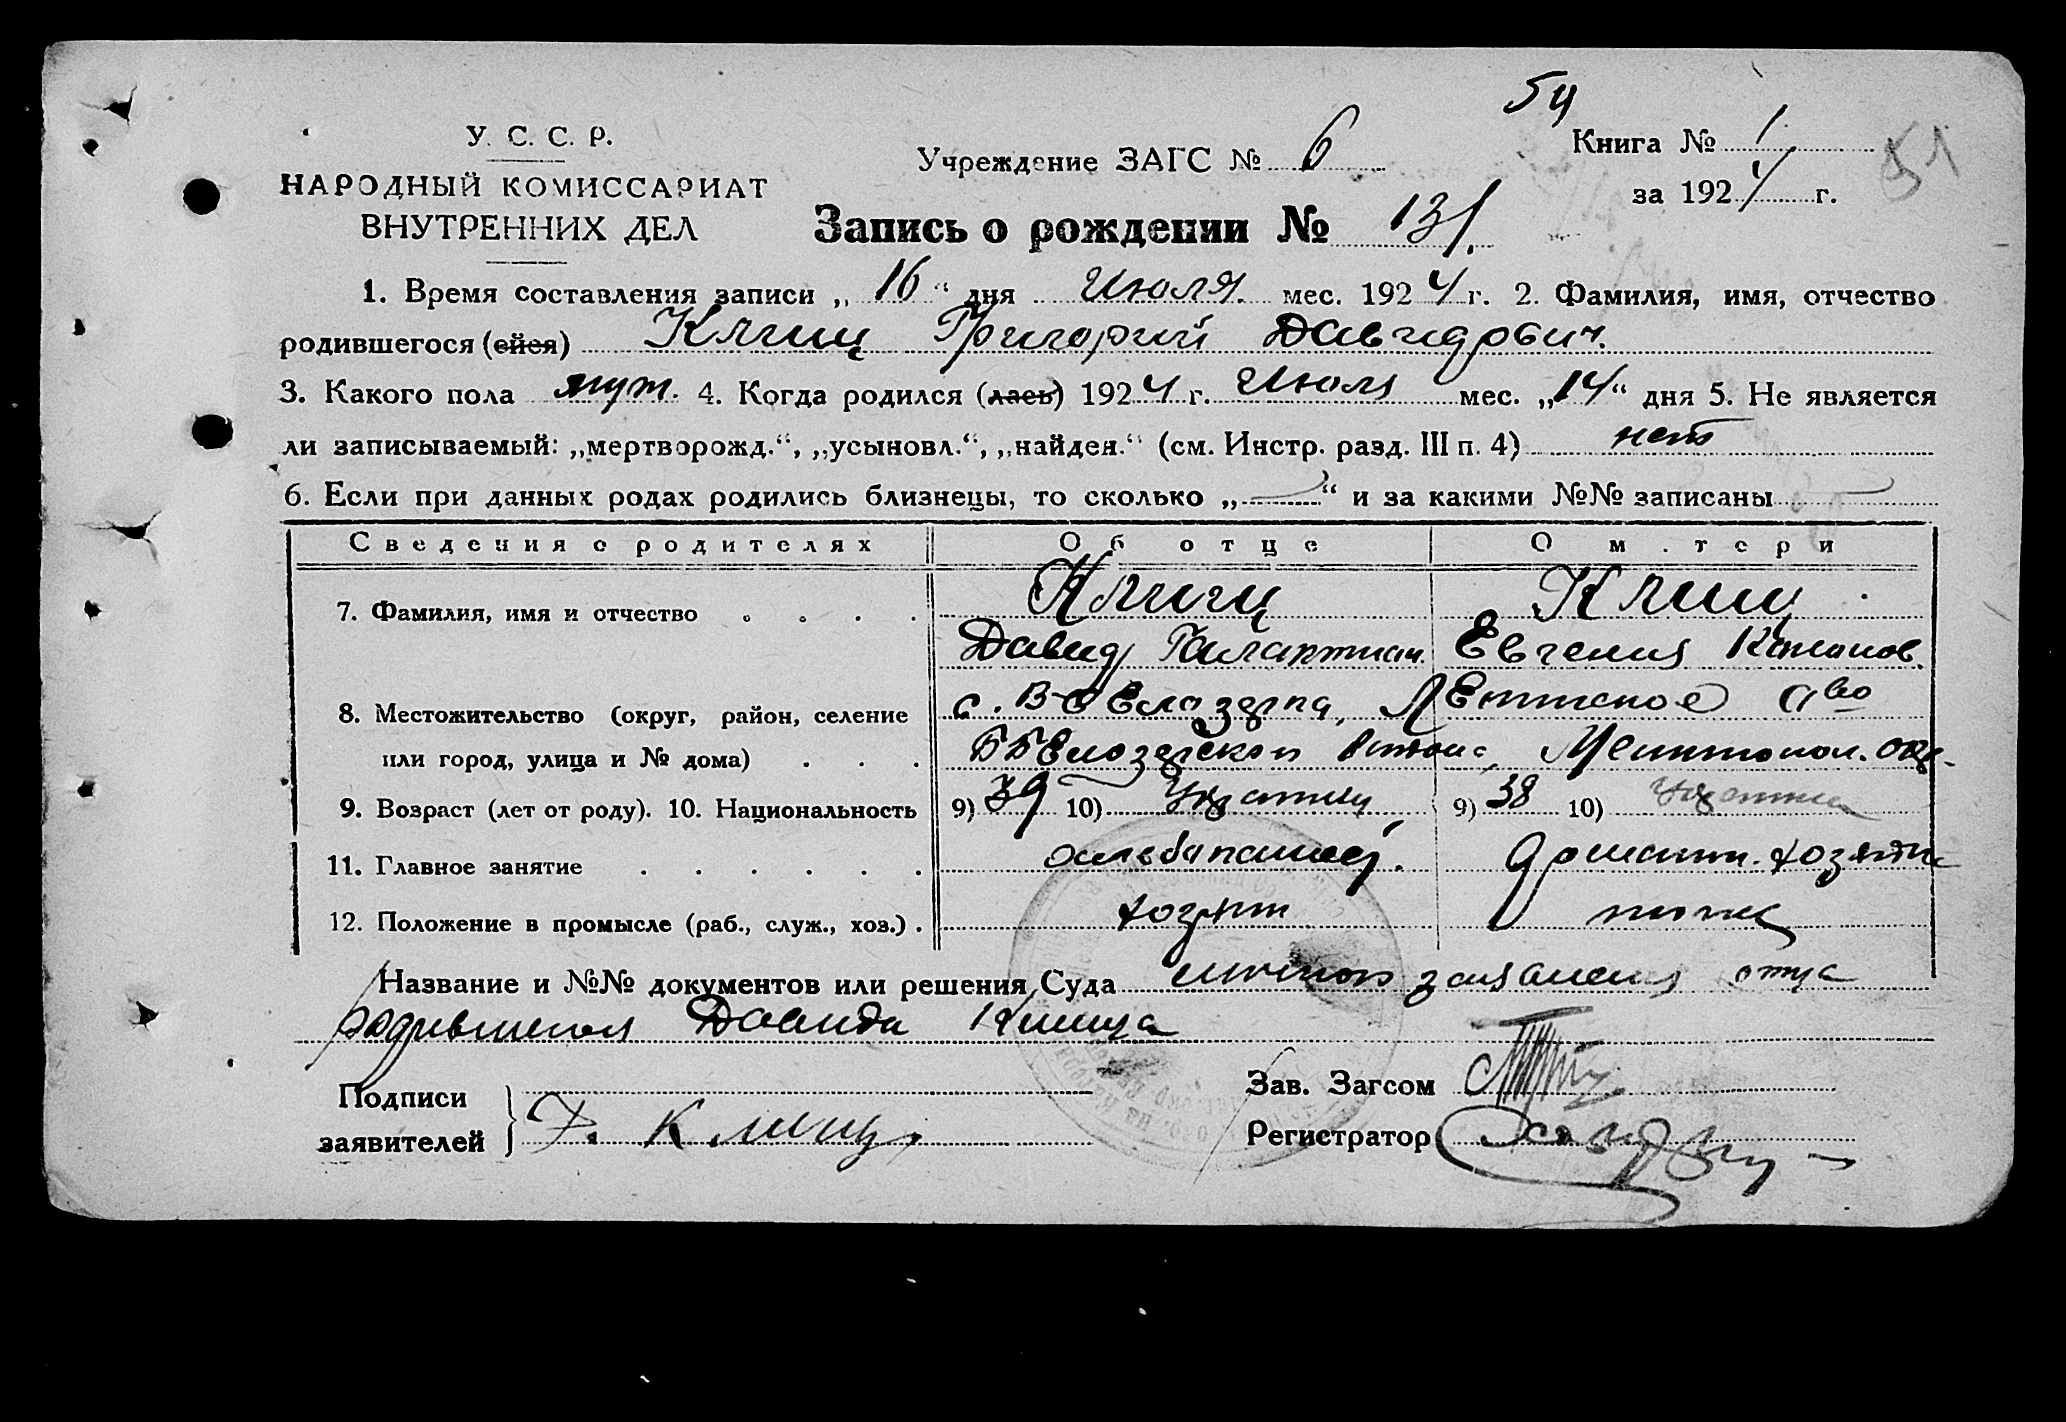 54
У. С. С. Р.
НАРОДНЫЙ КОМИССАРИАТ
ВНУТРЕННИХ ДЕЛ
Учреждение ЗАГС № 6
Книга № 1
51
за 1924 г.
Запись о рождении № 131.
1. Время составления записи „16“ дня Июля мес. 1924 г. 2. Фамилия, имя, отчество
родившегося (ейся) Клищ Григорий Давидович.
3. Какого пола муж. 4. Когда родился (лась) 1924 г. Июля мес. „14“ дня 5. Не является
ли записываемый: „мертворожд.“, „усыновл.“, „найден.“ (см. Инстр. разд. III п. 4) нет
6. Если при данных родах родились близнецы, то сколько „—“ и за какими №№ записаны
Сведения о родителях Об отце О м.тери
7. Фамилия, имя и отчество . . . . Клищ Клищ
Давид Евгения
8. Местожительство (округ, район, селение с.
или город, улица и № дома) . . .
9. Возраст (лет от роду). 10. Национальность 9) 39 10) Украинец 9) 38 10) Украинка
11. Главное занятие . . . . . . домашн. хозяйка
12. Положение в промысле (раб., служ., хоз.) . хозяин
Название и №№ документов или решения Суда заявления отца
родившегося Давида Клища
Подписи
заявителей } Д. Клищ
Зав. Загсом
Регистратор